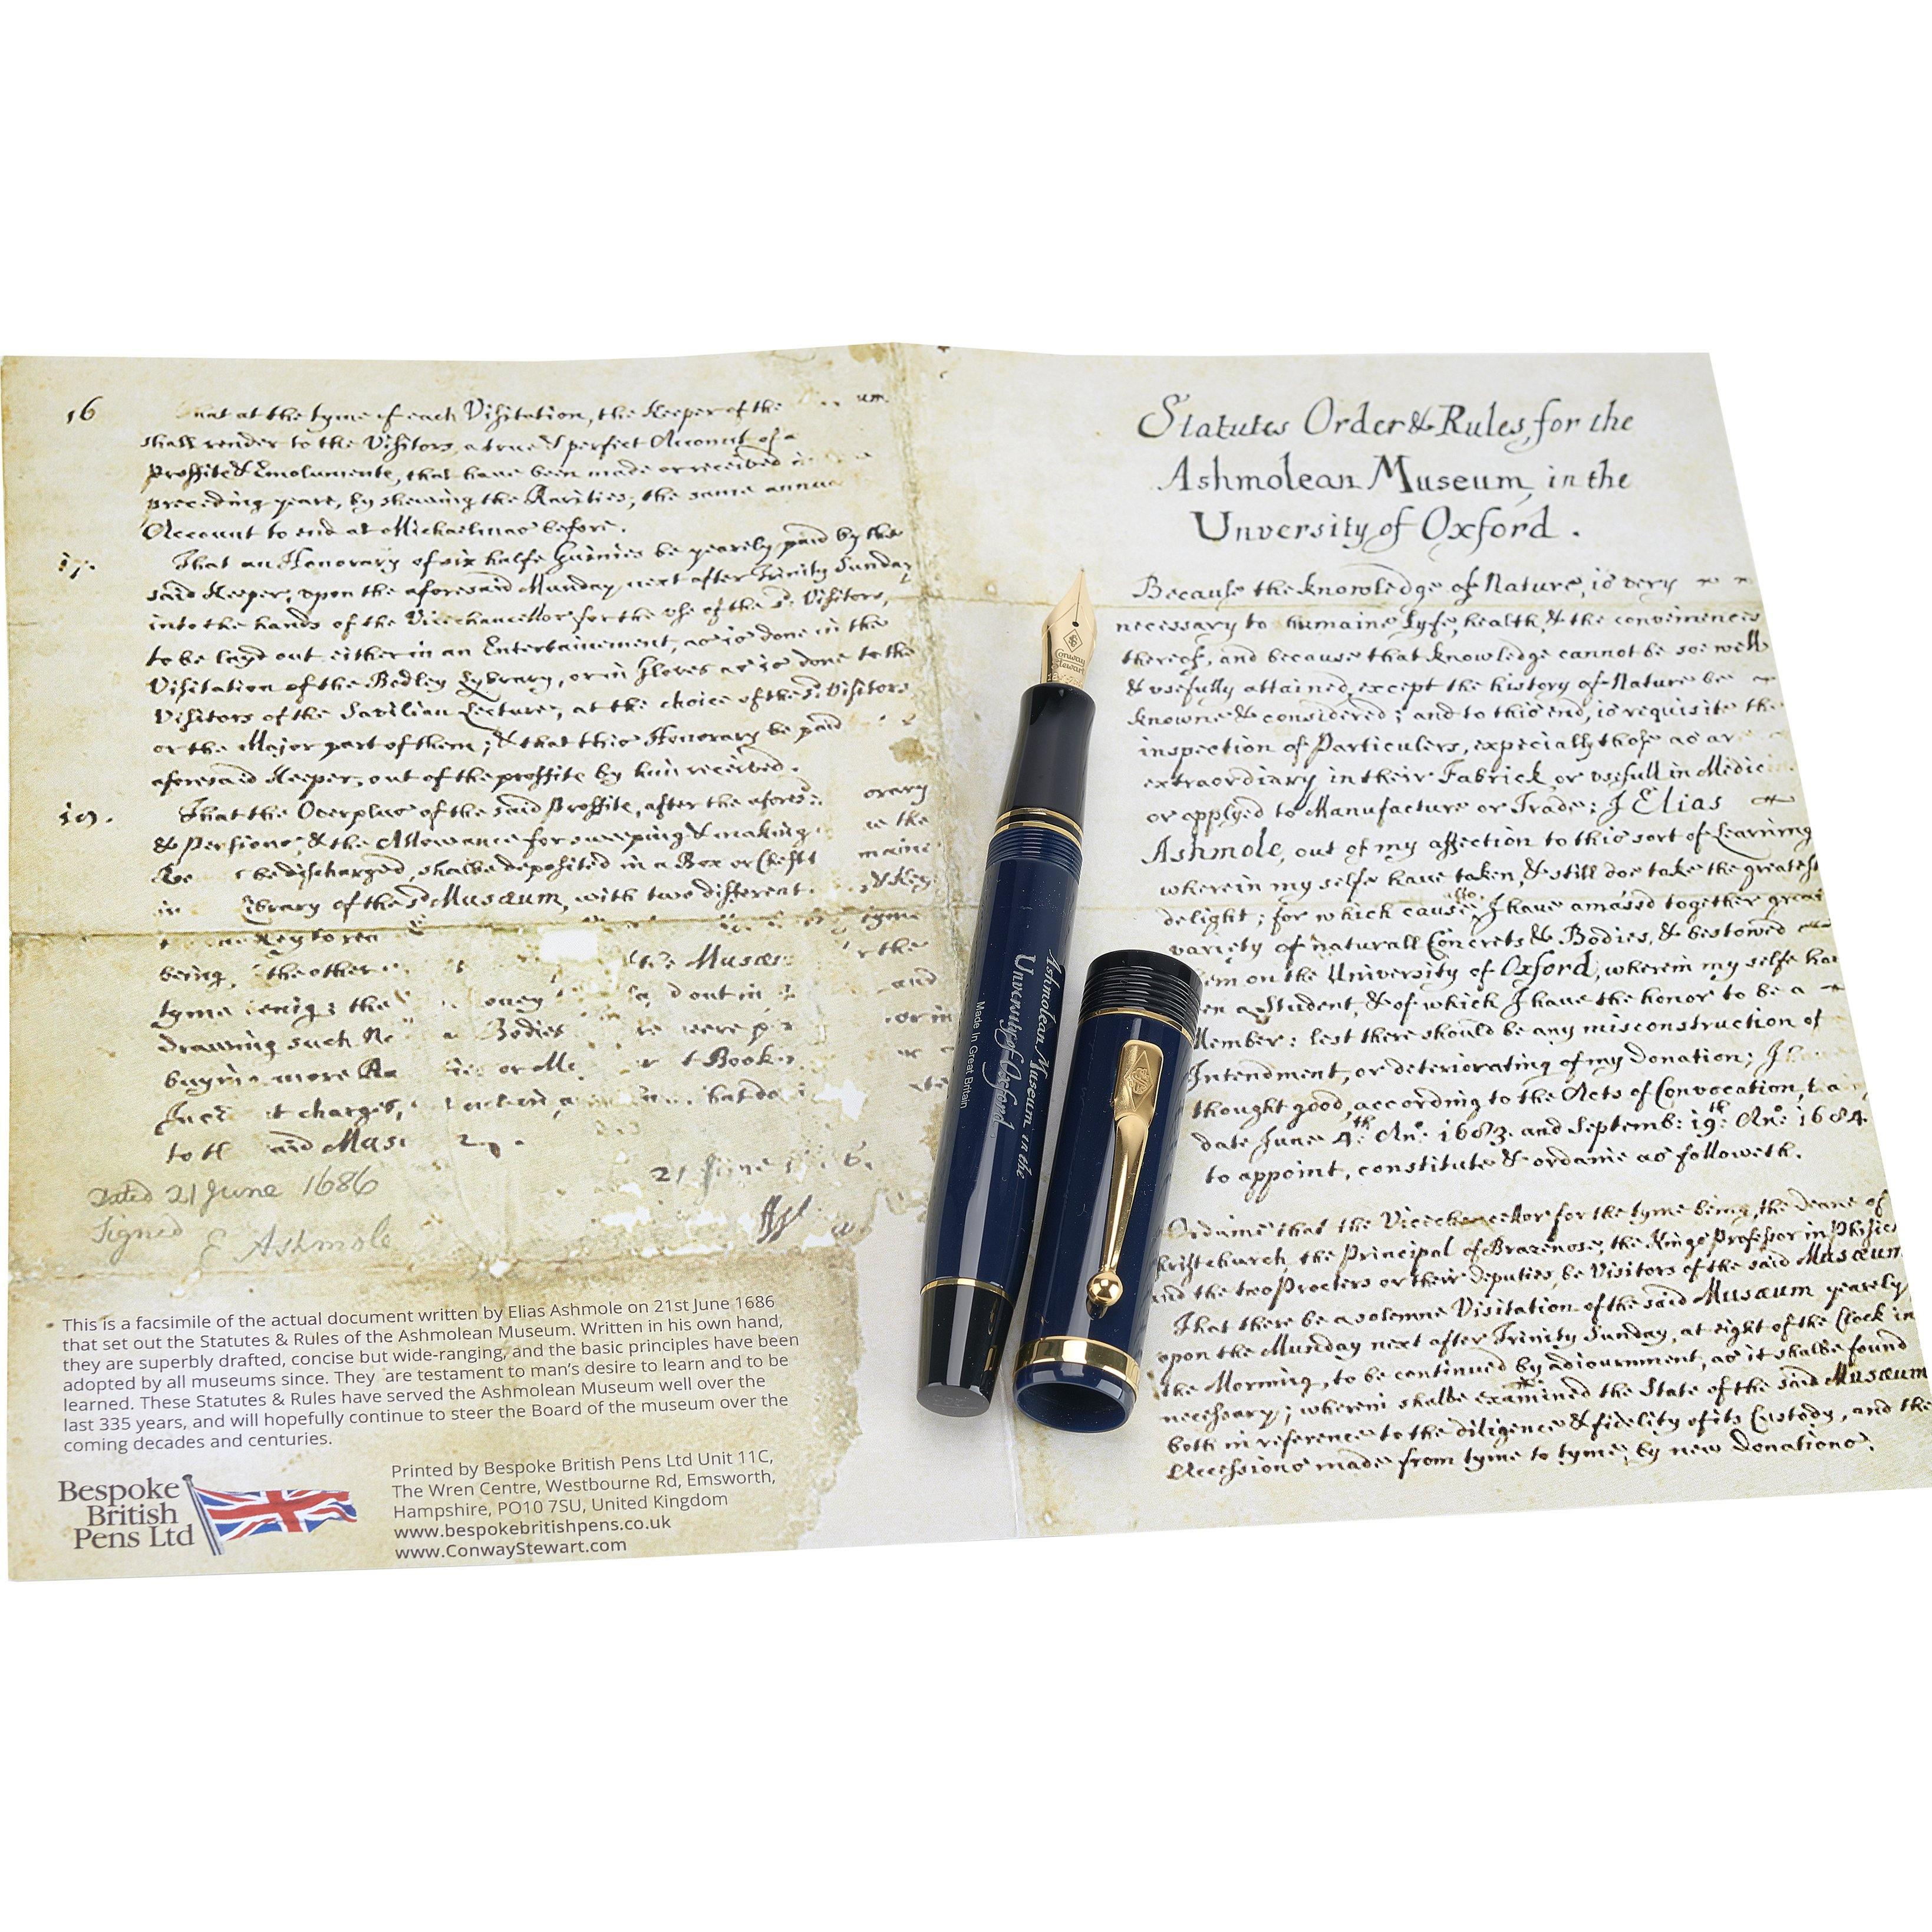 16
at at the tyme of each Visitation, the Keeper of the
shall render to the Visitors, a true & perfect Account of a
proffite & Emoluments, that have been made or received
preceding yeare, by shewing the Rarities, the same annua
Account to end at Michaelmas before.
17.
That an Honorary of six halfe Guinnies be yearely paid by the
said Keeper, upon the aforesaid Munday next after Trinity Sunday
into the hands of the Vicechancellor for the use of the sd. Visitors,
to be layd out either in an Entertainement, as is done in the
Visitation of the Bodley Lybrary, or in Gloves as is done to the
Visitors of the Savilian Lecture, at the choice of the sd. Visitors
or the Major part of them; & that this Honorary be paid
aforesaid Keeper, out of the proffite by him received.
That the Overplus of the said Proffite, after the afores orary
& Pensions, & the Allowance for sweeping & making the
be discharged, shalbe deposited in a Box or Chest maine
Library of the sd Musæum, with two different Keys
Key to tyme
being, the other Musæ the
tyme being; the oney d out in and
drawing such Bodies were or in
buying more or Book
charges,
to th aid Mus
21 June
Dated 21 June 1686
Signed E Ashmole
This is a facsimile of the actual document written by Elias Ashmole on 21st June 1686
that set out the Statutes & Rules of the Ashmolean Museum. Written in his own hand,
they are superbly drafted, concise but wide-ranging, and the basic principles have been
adopted by all museums since. They are testament to man's desire to learn and to be
learned. These Statutes & Rules have served the Ashmolean Museum well over the
last 335 years, and will hopefully continue to steer the Board of the museum over the
coming decades and centuries.
Bespoke
British
Pens Ltd
Printed by Bespoke British Pens Ltd Unit 11C,
The Wren Centre, Westbourne Rd, Emsworth,
Hampshire, PO10 7SU, United Kingdom
www.bespokebritishpens.co.uk
www.ConwayStewart.com
Conway
Stewart
Ashmolean Museum in the
Unversity of Oxford
Made In Great Britain
Statutes Order & Rules, for the
Ashmolean Museum, in the
Unversity of Oxford.
Because the knowledge of Nature, is very
necessary to humaine Lyfe, health, & the conveniences
thereof, and because that knowledge cannot be soe well
& usefully attained, except the history of Nature be
knowne & considered; and to this end, is requisite the
inspection of Particulers, expecially those as are
extraordinary in their Fabrick, or usefull in Medicin
or applyed to Manufacture or Trade: I Elias
Ashmole, out of my affection to this sort of Learning
wherein my selfe have taken, & still doe take the greatest
delight; for which cause also, I have amassd together great
variety of naturall Concrets & Bodies, & bestowed
em on the University of Oxford, wherein my selfe ha
en a Student, & of which I have the honor to be a
Member: lest there should be any misconstruction of
Intendment, or deteriorating of my donation; I
thought good, according to the Acts of Convocation,
date June 4th: Ano: 1683. and Septemb: 19th: Ano: 1684.
to appoint, constitute & ordaine as followeth.
Ordaine that the Vicechancellor for the tyme being, the Deane of
hristchurch, the Principal of Brazenose, the Kings Professor in Physic
and the two Procters or their deputies, be Visitors of the said Musæum
That there be a solemne Visitation of the said Musæum yearely
upon the Munday next after Trinity Sunday, at eight of the Clock in
the Morning, to be continued by adiournment, as it shalbe found
necessary; wherein shalbe examined the State of the said Musæum
both in reference to the diligence & fidelity of its Custody, and the
Accessions made from tyme to tyme, by new Donations.